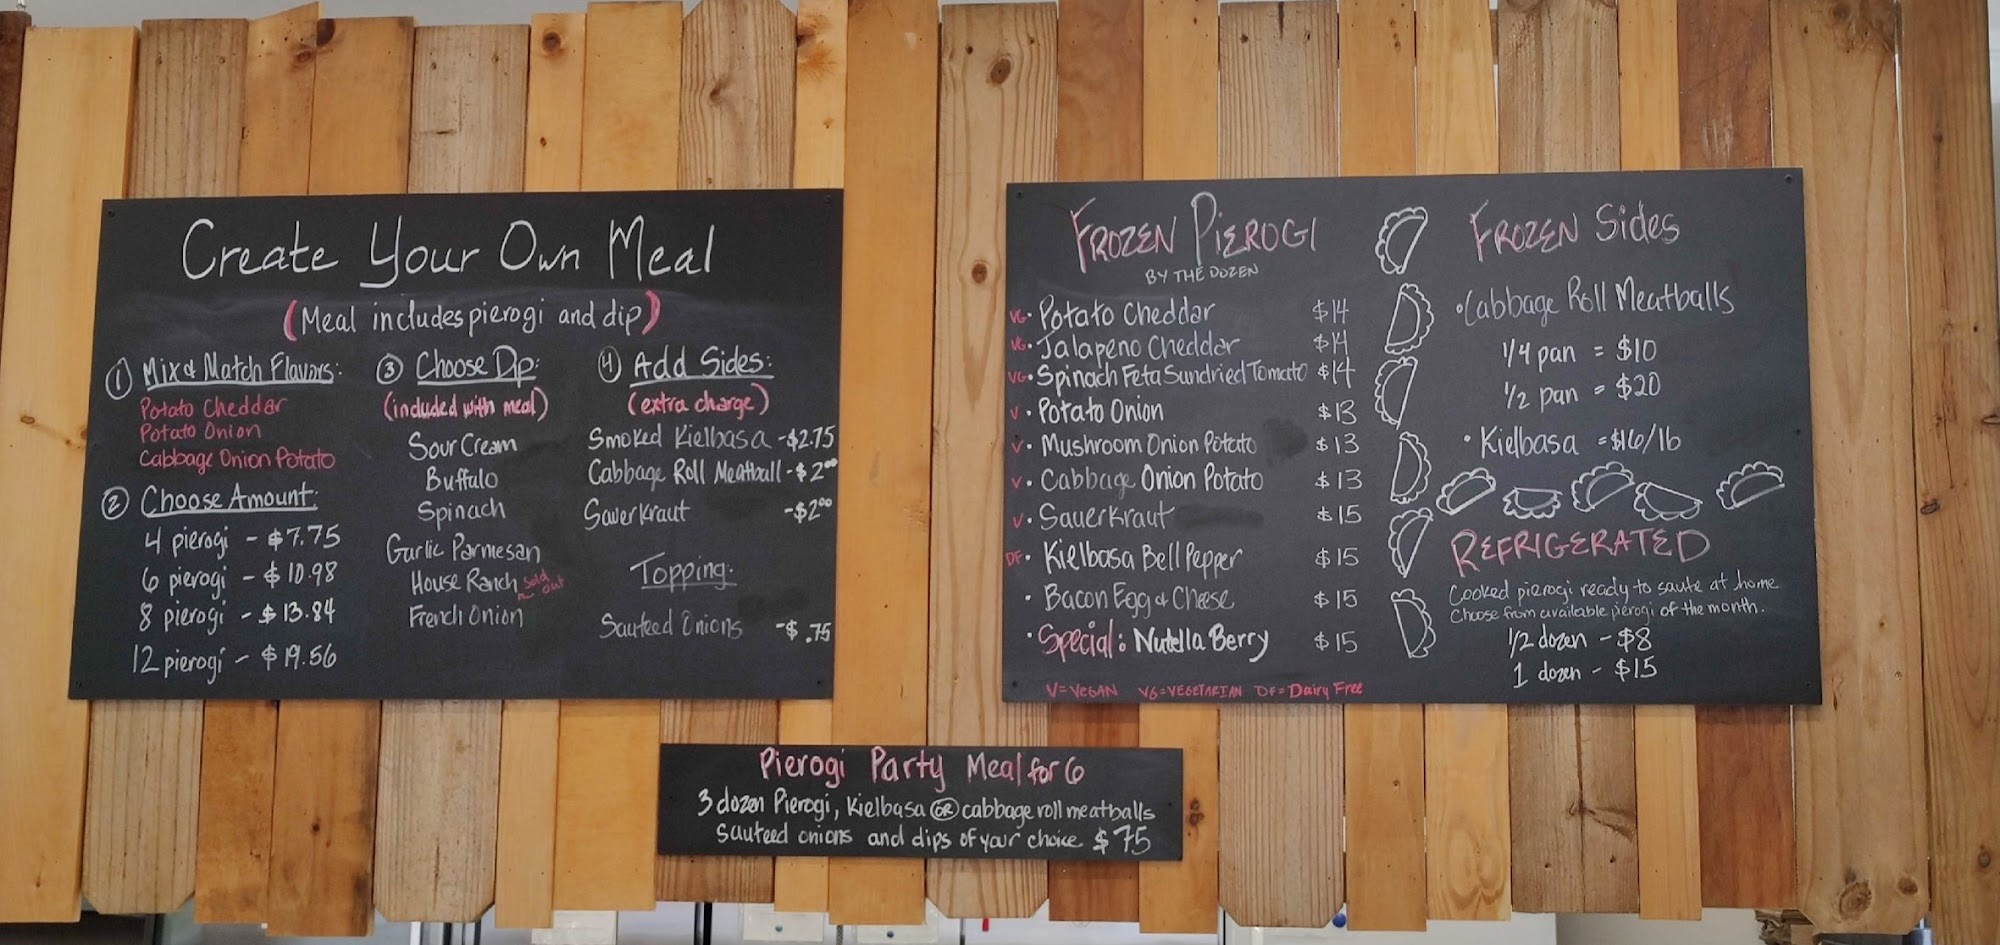 Create Your Own Meal
(Meal includes pierogi and dip)
① Mix & Match Flavors:
Potato Cheddar
Potato Onion
Cabbage Onion Potato
② Choose Amount:
4 pierogi - $7.75
6 pierogi - $10.98
8 pierogi - $13.84
12 pierogi - $19.56
③ Choose Dip:
(included with meal)
Sour Cream
Buffalo
Spinach
Garlic Parmesan
House Ranch sold out
French Onion
④ Add Sides:
(extra charge)
Smoked Kielbasa - $2.75
Cabbage Roll Meatball - $2.00
Sauerkraut - $2.00
Topping:
Sauteed Onions - $.75
Frozen Pierogi
By the Dozen
VG • Potato Cheddar $14
VG • Jalapeno Cheddar $14
VG • Spinach Feta Sundried Tomato $14
V • Potato Onion $13
V • Mushroom Onion Potato $13
V • Cabbage Onion Potato $13
V • Sauerkraut $15
DF • Kielbasa Bell Pepper $15
• Bacon Egg & Cheese $15
• Special: Nutella Berry $15
V=Vegan VG=Vegetarian DF=Dairy Free
Frozen Sides
• Cabbage Roll Meatballs
1/4 pan = $10
1/2 pan = $20
• Kielbasa = $16/lb
Refrigerated
Cooked pierogi ready to saute at home.
Choose from available pierogi of the month.
1/2 dozen - $8
1 dozen - $15
Pierogi Party Meal for 6
3 dozen Pierogi, Kielbasa OR cabbage roll meatballs
Sauteed onions and dips of your choice $75